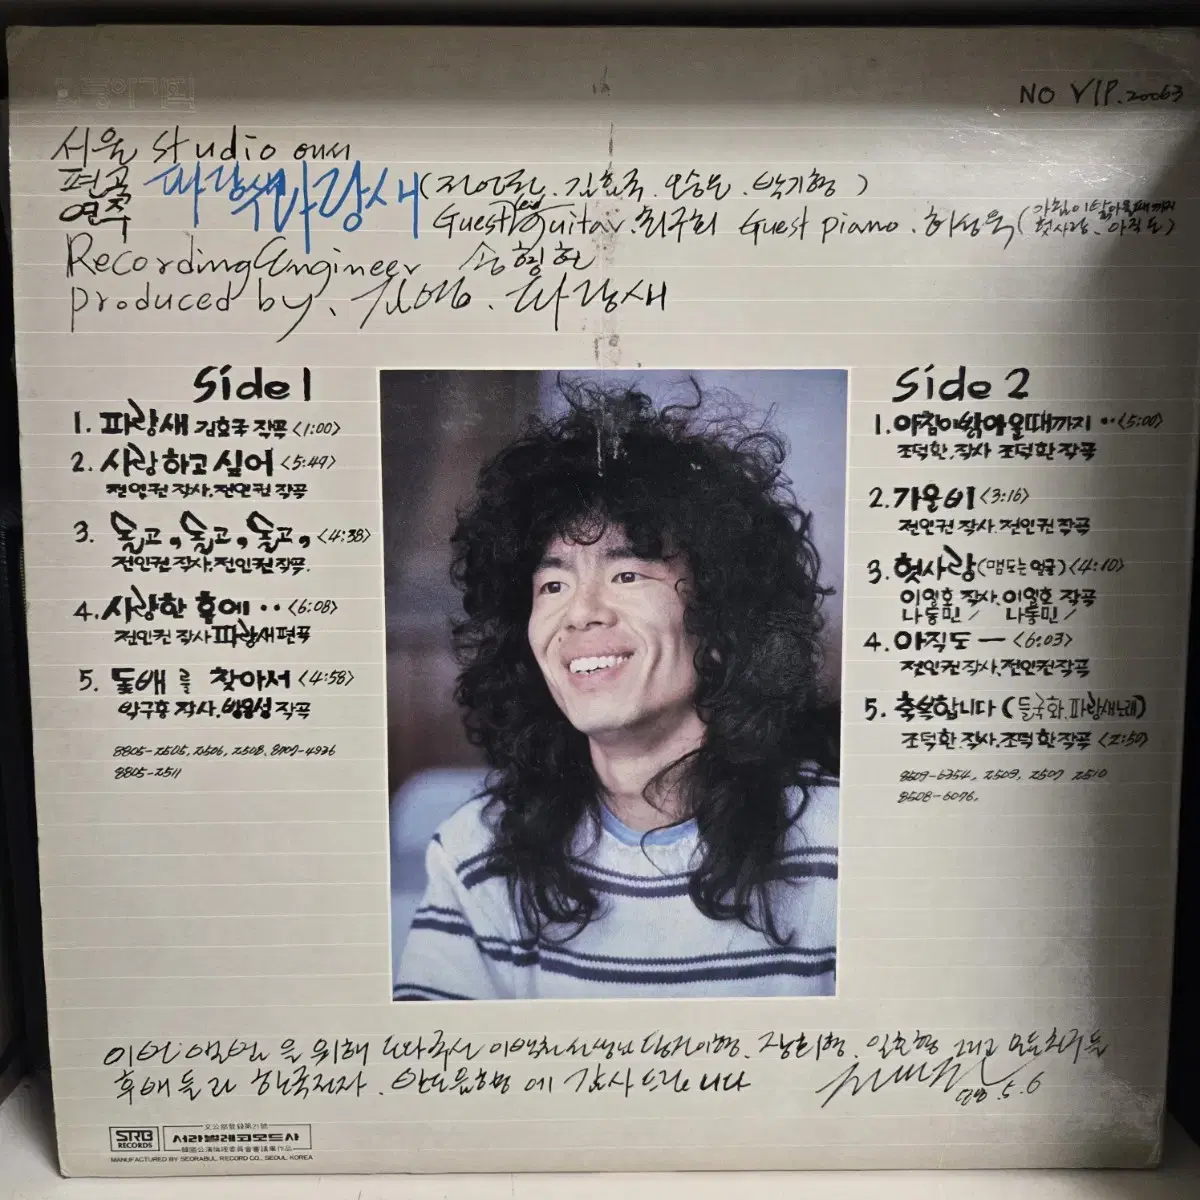 동아기획
NO VIP.20063
서울 studio 에서
편곡 연주 파랑새 파랑새 (전인권. 김효국. 오승은. 박기형)
Guest lead Guitar. 최구희 Guest piano. 허성욱 (아침이 밝아올때까지 헛사랑. 아직도)
Recording Engineer 송형헌
produced by. 파랑새
Side 1
1. 파랑새 김효국 작곡 <1:00>
2. 사랑하고 싶어 <5:49>
전인권 작사. 전인권 작곡
3. 돌고, 돌고, 돌고, <4:38>
전인권 작사. 전인권 작곡.
4. 사랑한 후에 ·· <6:08>
전인권 작사 파랑새 편곡
5. 돛배를 찾아서 <4:58>
박구홍 작사. 방용성 작곡
8805-2505, 2506, 2508, 8707-4936
8805-2511
Side 2
1. 아침이 밝아 올때까지 ·· <5:00>
조덕환. 작사 조덕환 작곡
2. 가을비 <3:16>
전인권 작사. 전인권 작곡
3. 헛사랑 (맴도는 얼굴) <4:10>
이일호 작사. 이일호 작곡
나동민 〃 나동민 〃
4. 아직도 — <6:03>
전인권 작사. 전인권 작곡
5. 축복합니다 (들국화. 파랑새 노래)
조덕환. 작사. 조덕환 작곡 <2:50>
8509-6354, 2509, 2507 2510
8508-6076.
이번 앨범을 위해 도와주신 이백천 선생님 형. 그리고 모든 친구들
후배들과 한국전자. 형에 감사드립니다
88.5.6
SRB RECORDS
文公部登録第21號
서라벌레코오드사
韓國公演倫理委員會審議畢作品
MANUFACTURED BY SEORABUL RECORD CO., SEOUL KOREA